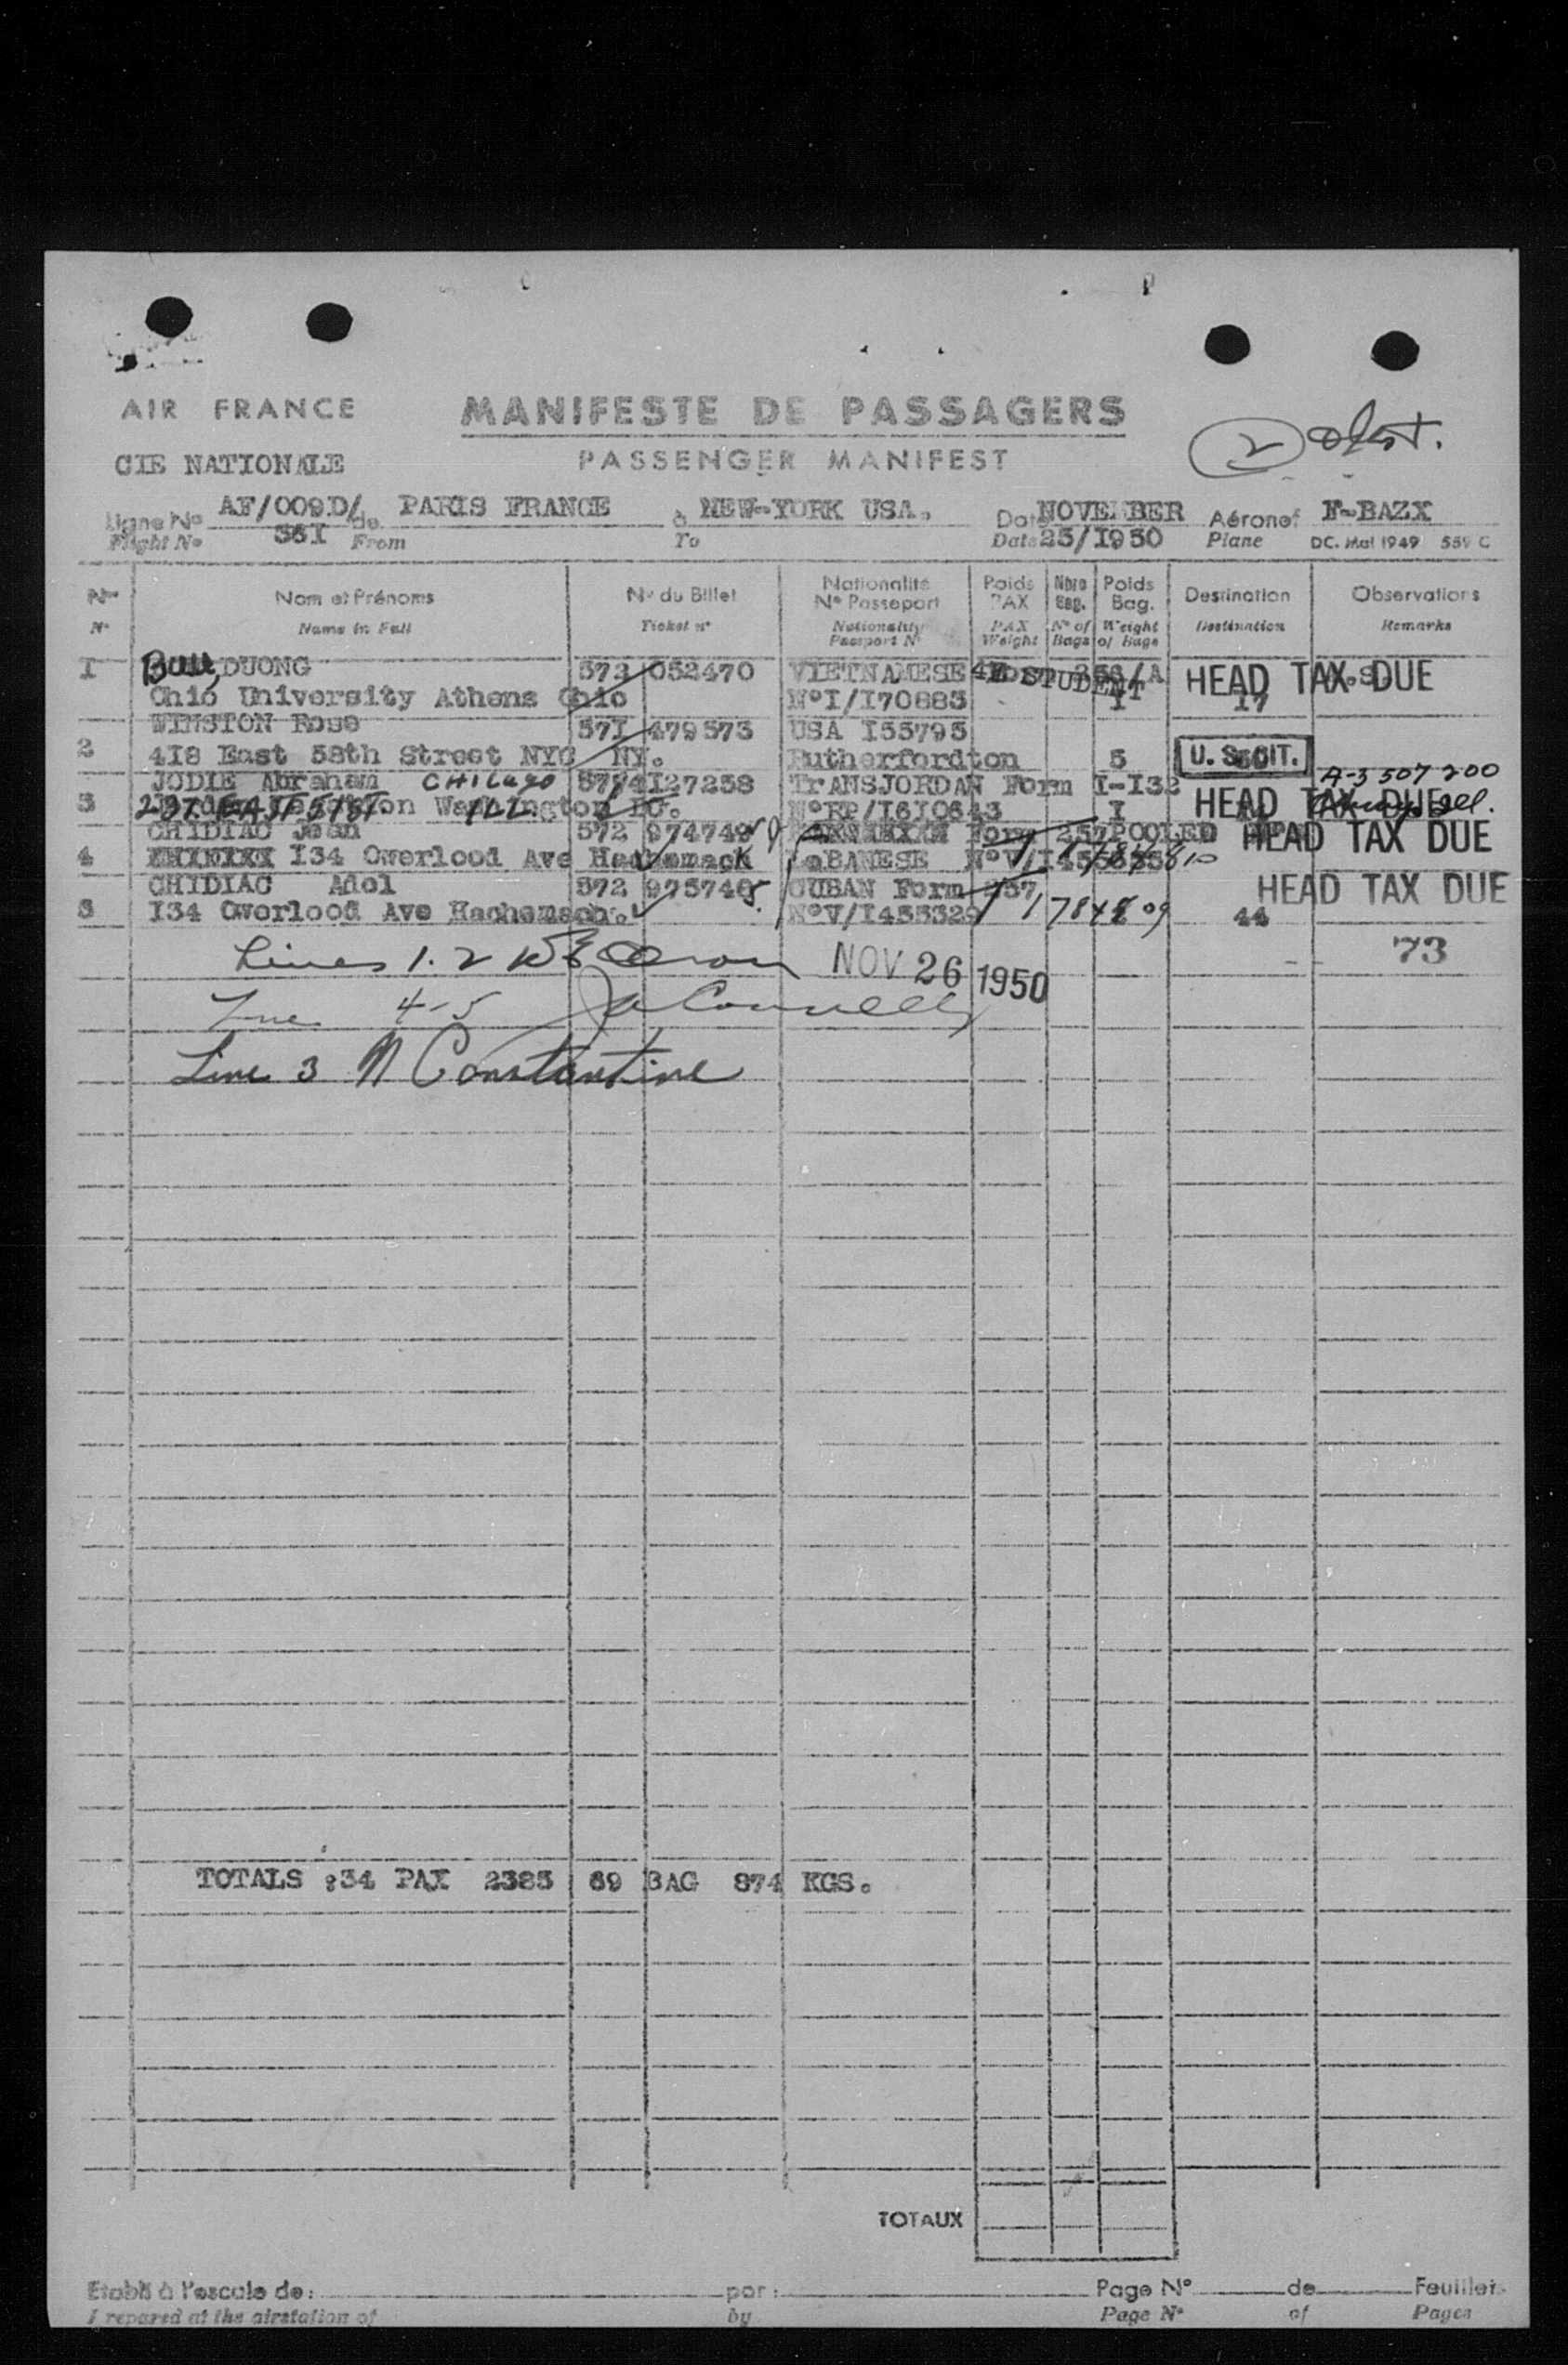 AIR FRANCE
MANIFESTE DE PASSAGERS
CIE NATIONALE
PASSENGER MANIFEST
Ligne No AF/009D/ de PARIS FRANCE à NEW-YORK USA. Date NOVEMBER Aéronef F-BAZX
Flight No 36I From To Date 25/I950 Plane DC. Mai 1949 559 C
Nos Nom et Prénoms No du Billet Nationalité No Passeport Poids PAX Nbre Bag. Poids Bag. Destination Observations
No Name in Full Ticket no Nationality Passport No PAX Weight No of Bags Weight of Bags Destination Remarks
I DUONG 572 052470 VIETNAMESE STUDENT HEAD TAX DUE
Ohio University Athens Ohio NoI/I70883 I 17
WINSTON Rose 57I 479573 USA I55795
2 4I8 East 58th Street NYC NY. Rutherfordton 5 U. S. CIT.
JODIE Abraham CHICAGO 27258 TRANSJORDAN Form I-I32 A-3 507 200
3 EAST 51ST ILL. Washington DC. NoRP/I6I0643 I HEAD TAX DUE
CHIDIAC Jean 572 974748 Form 257 POOLED HEAD TAX DUE
4 I34 Overlood Ave Hachemack LEBANESE
CHIDIAC Adel 572 975748 CUBAN Form 257 HEAD TAX DUE
5 I34 Overlood Ave Hachemach. NoV/I455329 44
Lines 1. 2 NOV 26 1950 73
Line 4-5 Connelly
Line 3 N Constantine
TOTALS :34 PAX 2385 69 BAG 874 KGS.
TOTAUX
Etabli à l'escale de: par: Page No de Feuillets
Prepared at the airstation of by Page No of Pages